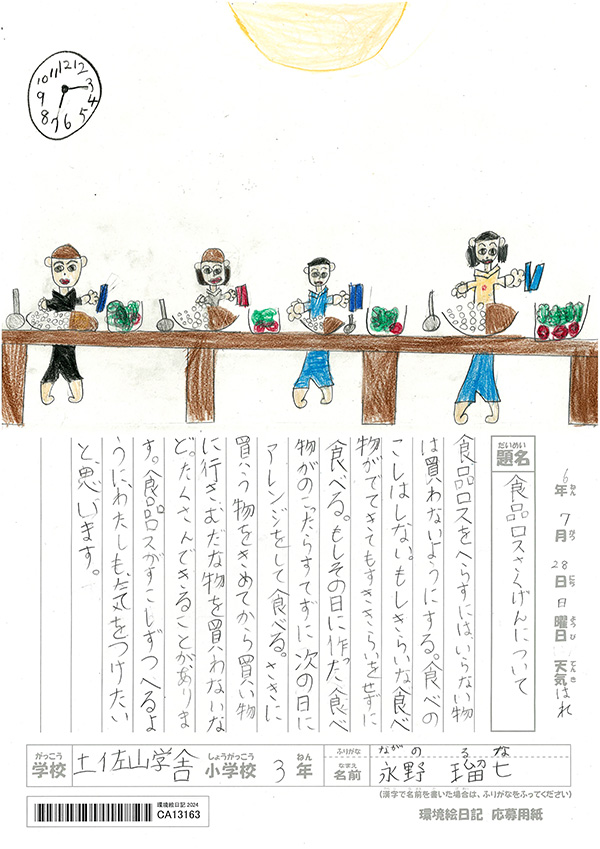 12 1 2 3 4 5 6 7 8 9 10 11
6年ねん 7月がつ 28日にち 日曜日ようび 天気てんき はれ
だいめい
題名 食品ロスさくげんについて
食品ロスをへらすにはいらない物
は買わないようにする。食べの
こしはしない。もしきらいな食べ
物がでてきてもすききらいをせずに
食べる。もしその日に作った食べ
物がのこったらすてずに次の日に
アレンジをして食べる。さきに
買う物をきめてから買い物
に行きむだな物を買わないな
ど。たくさんできることがありま
す。食品ロスがすこしずつへるよ
うに、わたしも、気をつけたい
と、思います。
がっこう しょうがっこう ねん ふりがな ながの るな
学校 土佐山学舎 小学校 3年 なまえ 名前 永野 瑠七
(漢字で名前を書いた場合は、ふりがなをふってください)
環境絵日記 2024
CA13163
環境絵日記 応募用紙